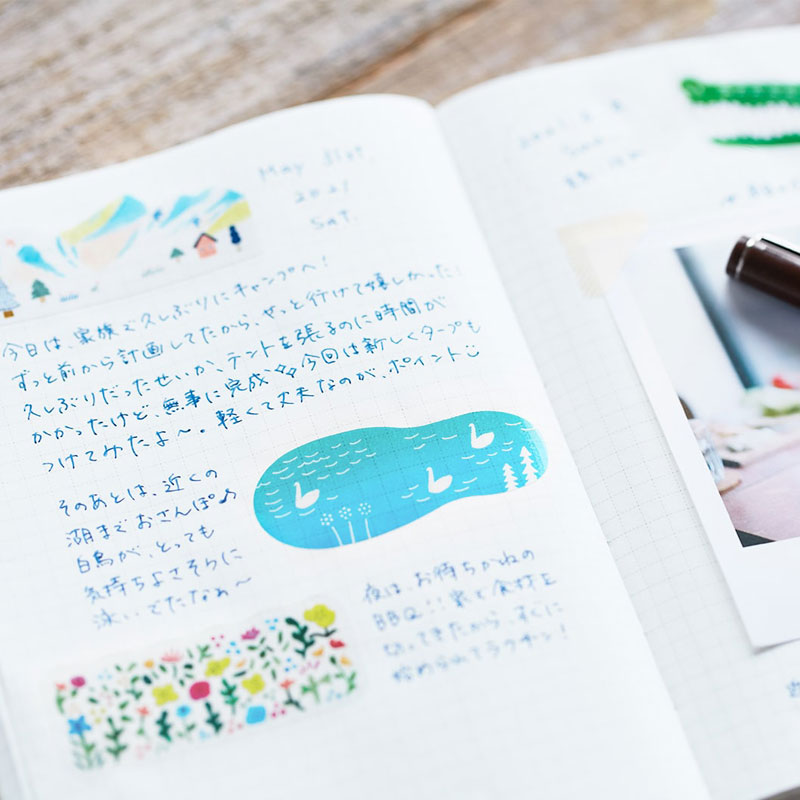 May 31st.
2021
Sat.
今日は、家族で久しぶりにキャンプへ!
ずっと前から計画してたから、やっと行けて嬉しかった!
久しぶりだったせいか、テントを張るのに時間が
かかったけど、無事に完成✨今回は新しくタープも
つけてみたよ〜。軽くて丈夫なのが、ポイント☺
そのあとは、近くの
湖までおさんぽ♪
白鳥が、とっても
気持ちよさそうに
泳いでたなぁ〜
夜は、お待ちかねの
BBQ!!家で食材を
切ってきたから、すぐに
始められてラクチン!